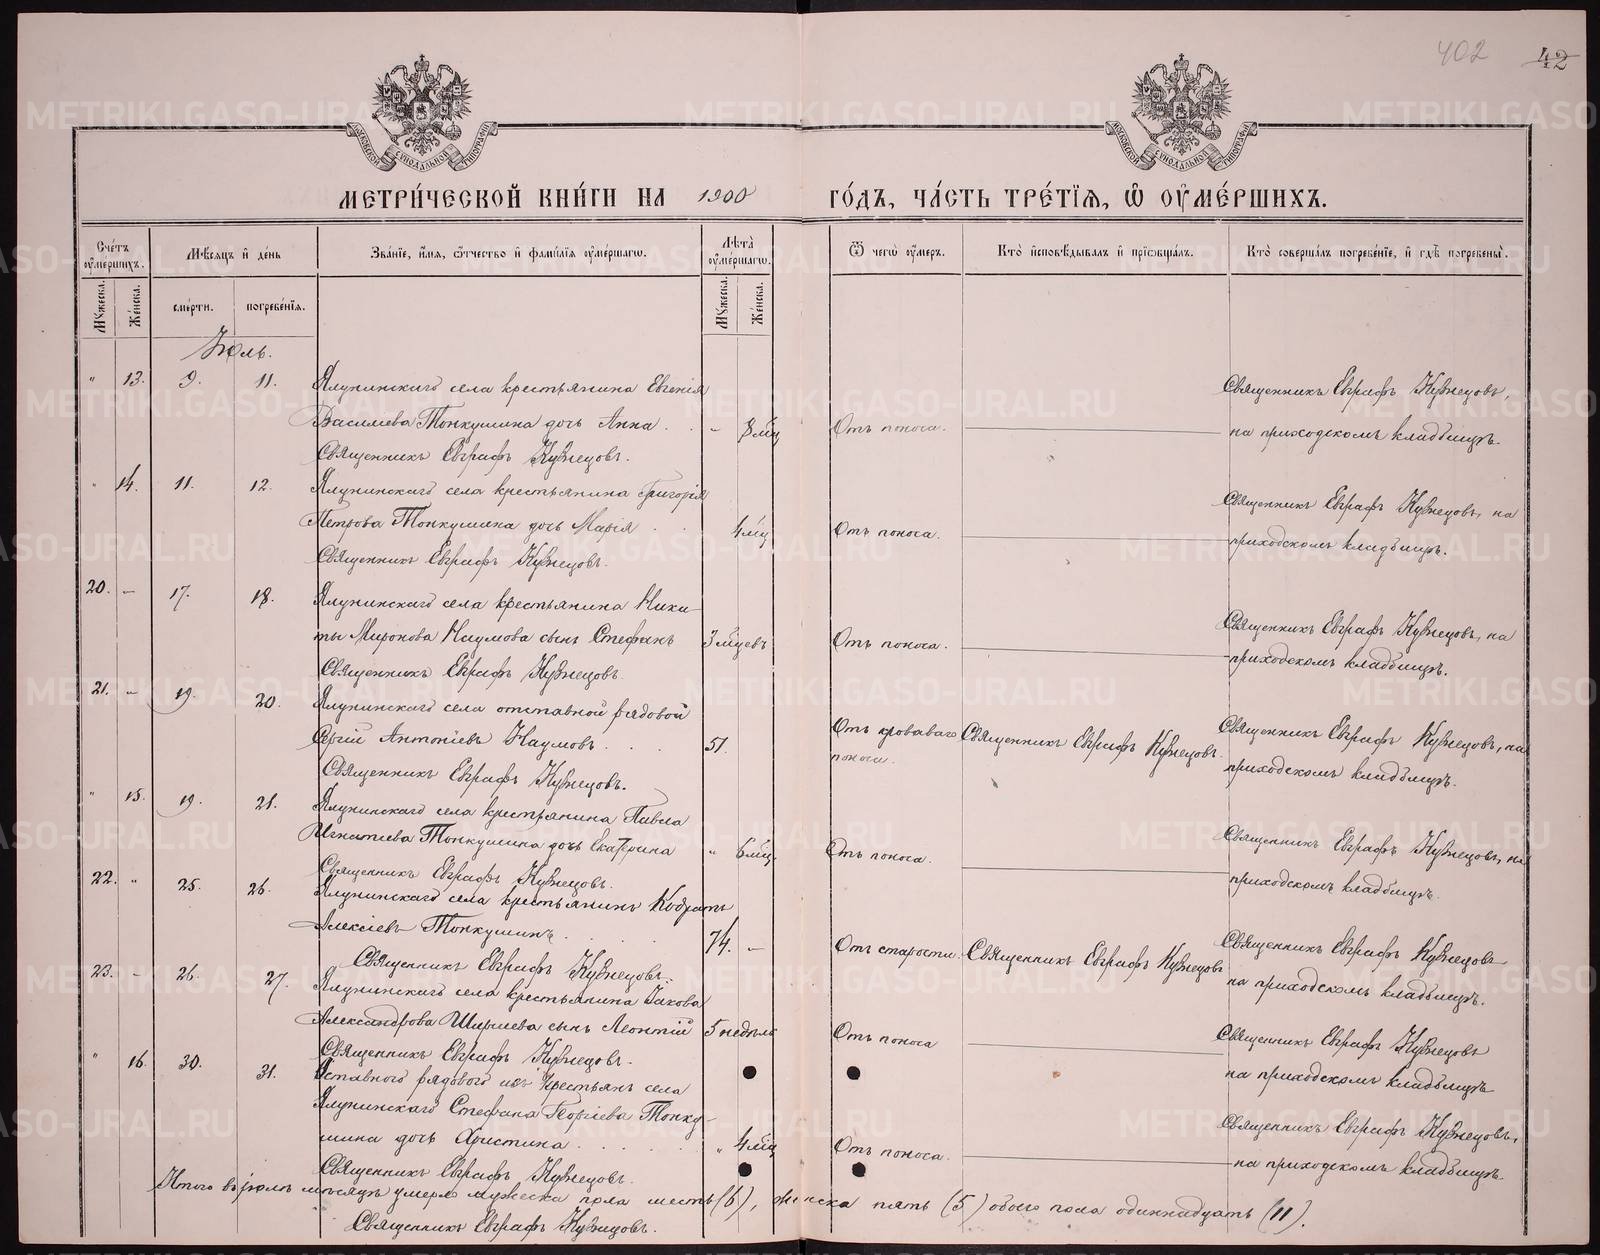 402 42
МЕТРИ́ЧЕСКОЙ КНИ́ГИ НА 1900 ГО́ДЪ, ЧА́СТЬ ТРЕ́ТІЯ, Ѽ ОУ҆МЕ́РШИХЪ.
Сче́тъ оу҆ме́ршихъ.
Мꙋ́жеска.
Же́нска.
Мѣ́сяцъ и҆ де́нь
сме́рти.
погребе́нїя.
Зва́нїе, и҆́мя, ѻ҆́тчество и҆ фами́лїя оу҆ме́ршагѡ.
Лѣ́та оу҆ме́ршагѡ.
Мꙋ́жеска.
Же́нска.
Ѿ чегѡ̀ оу҆́меръ.
Кто̀ и҆сповѣ́дывалъ и҆ прїѡбща́лъ.
Кто̀ соверша́лъ погребе́нїе, и҆ гдѣ̀ погребены̀.
Іюль.
" 13. 9. 11. Ялунинскаго села крестьянина Евгенія
Василиева Тонкушина дочь Анна . . - 8 мц Отъ поноса.
Священникъ Евграфъ Кузнецовъ.
Священникъ Евграфъ Кузнецовъ,
на приходскомъ кладбищѣ.
" 14. 11. 12. Ялунинскаго села крестьянина Григорія
Петрова Тонкушина дочь Марія . . 4 мц Отъ поноса.
Священникъ Евграфъ Кузнецовъ.
Священникъ Евграфъ Кузнецовъ, на
приходскомъ кладбищѣ.
20. - 17. 18. Ялунинскаго села крестьянина Ники-
ты Миронова Наумова сынъ Стефанъ 3 мцевъ Отъ поноса.
Священникъ Евграфъ Кузнецовъ.
Священникъ Евграфъ Кузнецовъ, на
приходскомъ кладбищѣ.
21. - 19. 20. Ялунинскаго села отставной рядовой
Сергій Антоніевъ Наумовъ . . . 51. Отъ кроваваго поноса.
Священникъ Евграфъ Кузнецовъ.
Священникъ Евграфъ Кузнецовъ.
Священникъ Евграфъ Кузнецовъ, на
приходскомъ кладбищѣ.
" 15. 19. 21. Ялунинскаго села крестьянина Павла
Игнатиева Тонкушина дочь Екатерина " 6 мц. Отъ поноса.
Священникъ Евграфъ Кузнецовъ.
Священникъ Евграфъ Кузнецовъ, на
приходскомъ кладбищѣ.
22. " 25. 26. Ялунинскаго села крестьянинъ Кодратъ
Алексіевъ Тонкушинъ . . . 74. - Отъ старости.
Священникъ Евграфъ Кузнецовъ.
Священникъ Евграфъ Кузнецовъ
Священникъ Евграфъ Кузнецовъ
на приходскомъ кладбищѣ.
23. - 26. 27. Ялунинскаго села крестьянина Іакова
Александрова Ширшева сынъ Леонтій 5 недѣль Отъ поноса
Священникъ Евграфъ Кузнецовъ.
Священникъ Евграфъ Кузнецовъ
на приходскомъ кладбищѣ
" 16. 30. 31. Отставного рядового изъ крестьянъ села
Ялунинскаго Стефана Георгіева Тонку-
шина дочь Христина . . . . " 4 мц Отъ поноса.
Священникъ Евграфъ Кузнецовъ.
Священникъ Евграфъ Кузнецовъ,
на приходскомъ кладбищѣ.
Итого въ іюлѣ мѣсяцѣ умерло мужеска пола шесть (6), женска пять (5) обоего пола одиннадцать (11).
Священникъ Евграфъ Кузнецовъ.
METRIKI.GASO-URAL.RU